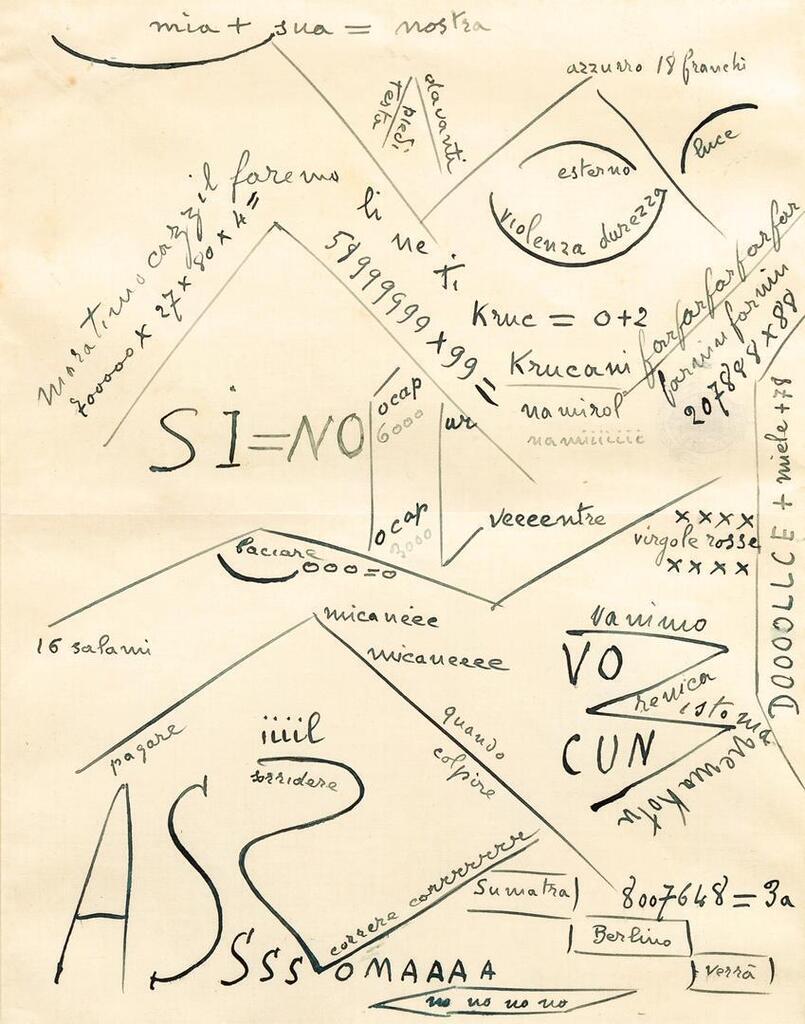 mia + sua = nostra
azzurro 18 franchi
davanti
piedi
testa
luce
esterno
violenza durezza
il faremo
li ne ti
58999999 x 99 =
700000 x 27 x 80 x 4 =
Kruc = 0+2
Krucani farfarfarfarfarfar
farinin farinin
207898 x 88
namirol
namiiiiiii
SI = NO
ocap
6000
ur
ocap
3000
veeeentre
xxxx
virgole rosse
xxxx
DOOOOLLCE + miele + 78
baciare
000=0
16 salami
micanèee
micaneeee
vanimo
VO
renica
CUN
pagare
quando
colpire
iiiil
sorridere
correre corrrrrrrrr
ASSSSS OMAAAA
Sumatra
8007648 = 3a
Berlino
verrà
no no no no